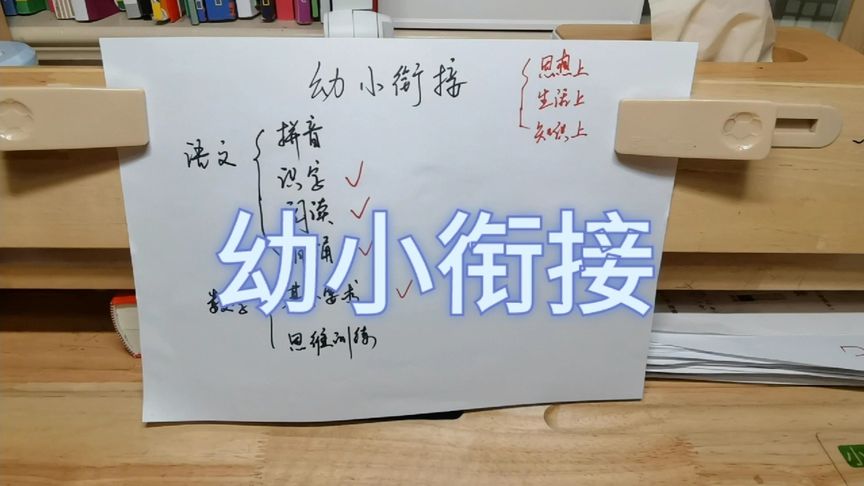 幼小衔接
思想上
生活上
知识上
语文
拼音
识字
阅读
诵
数学
思维训练
幼小衔接
小